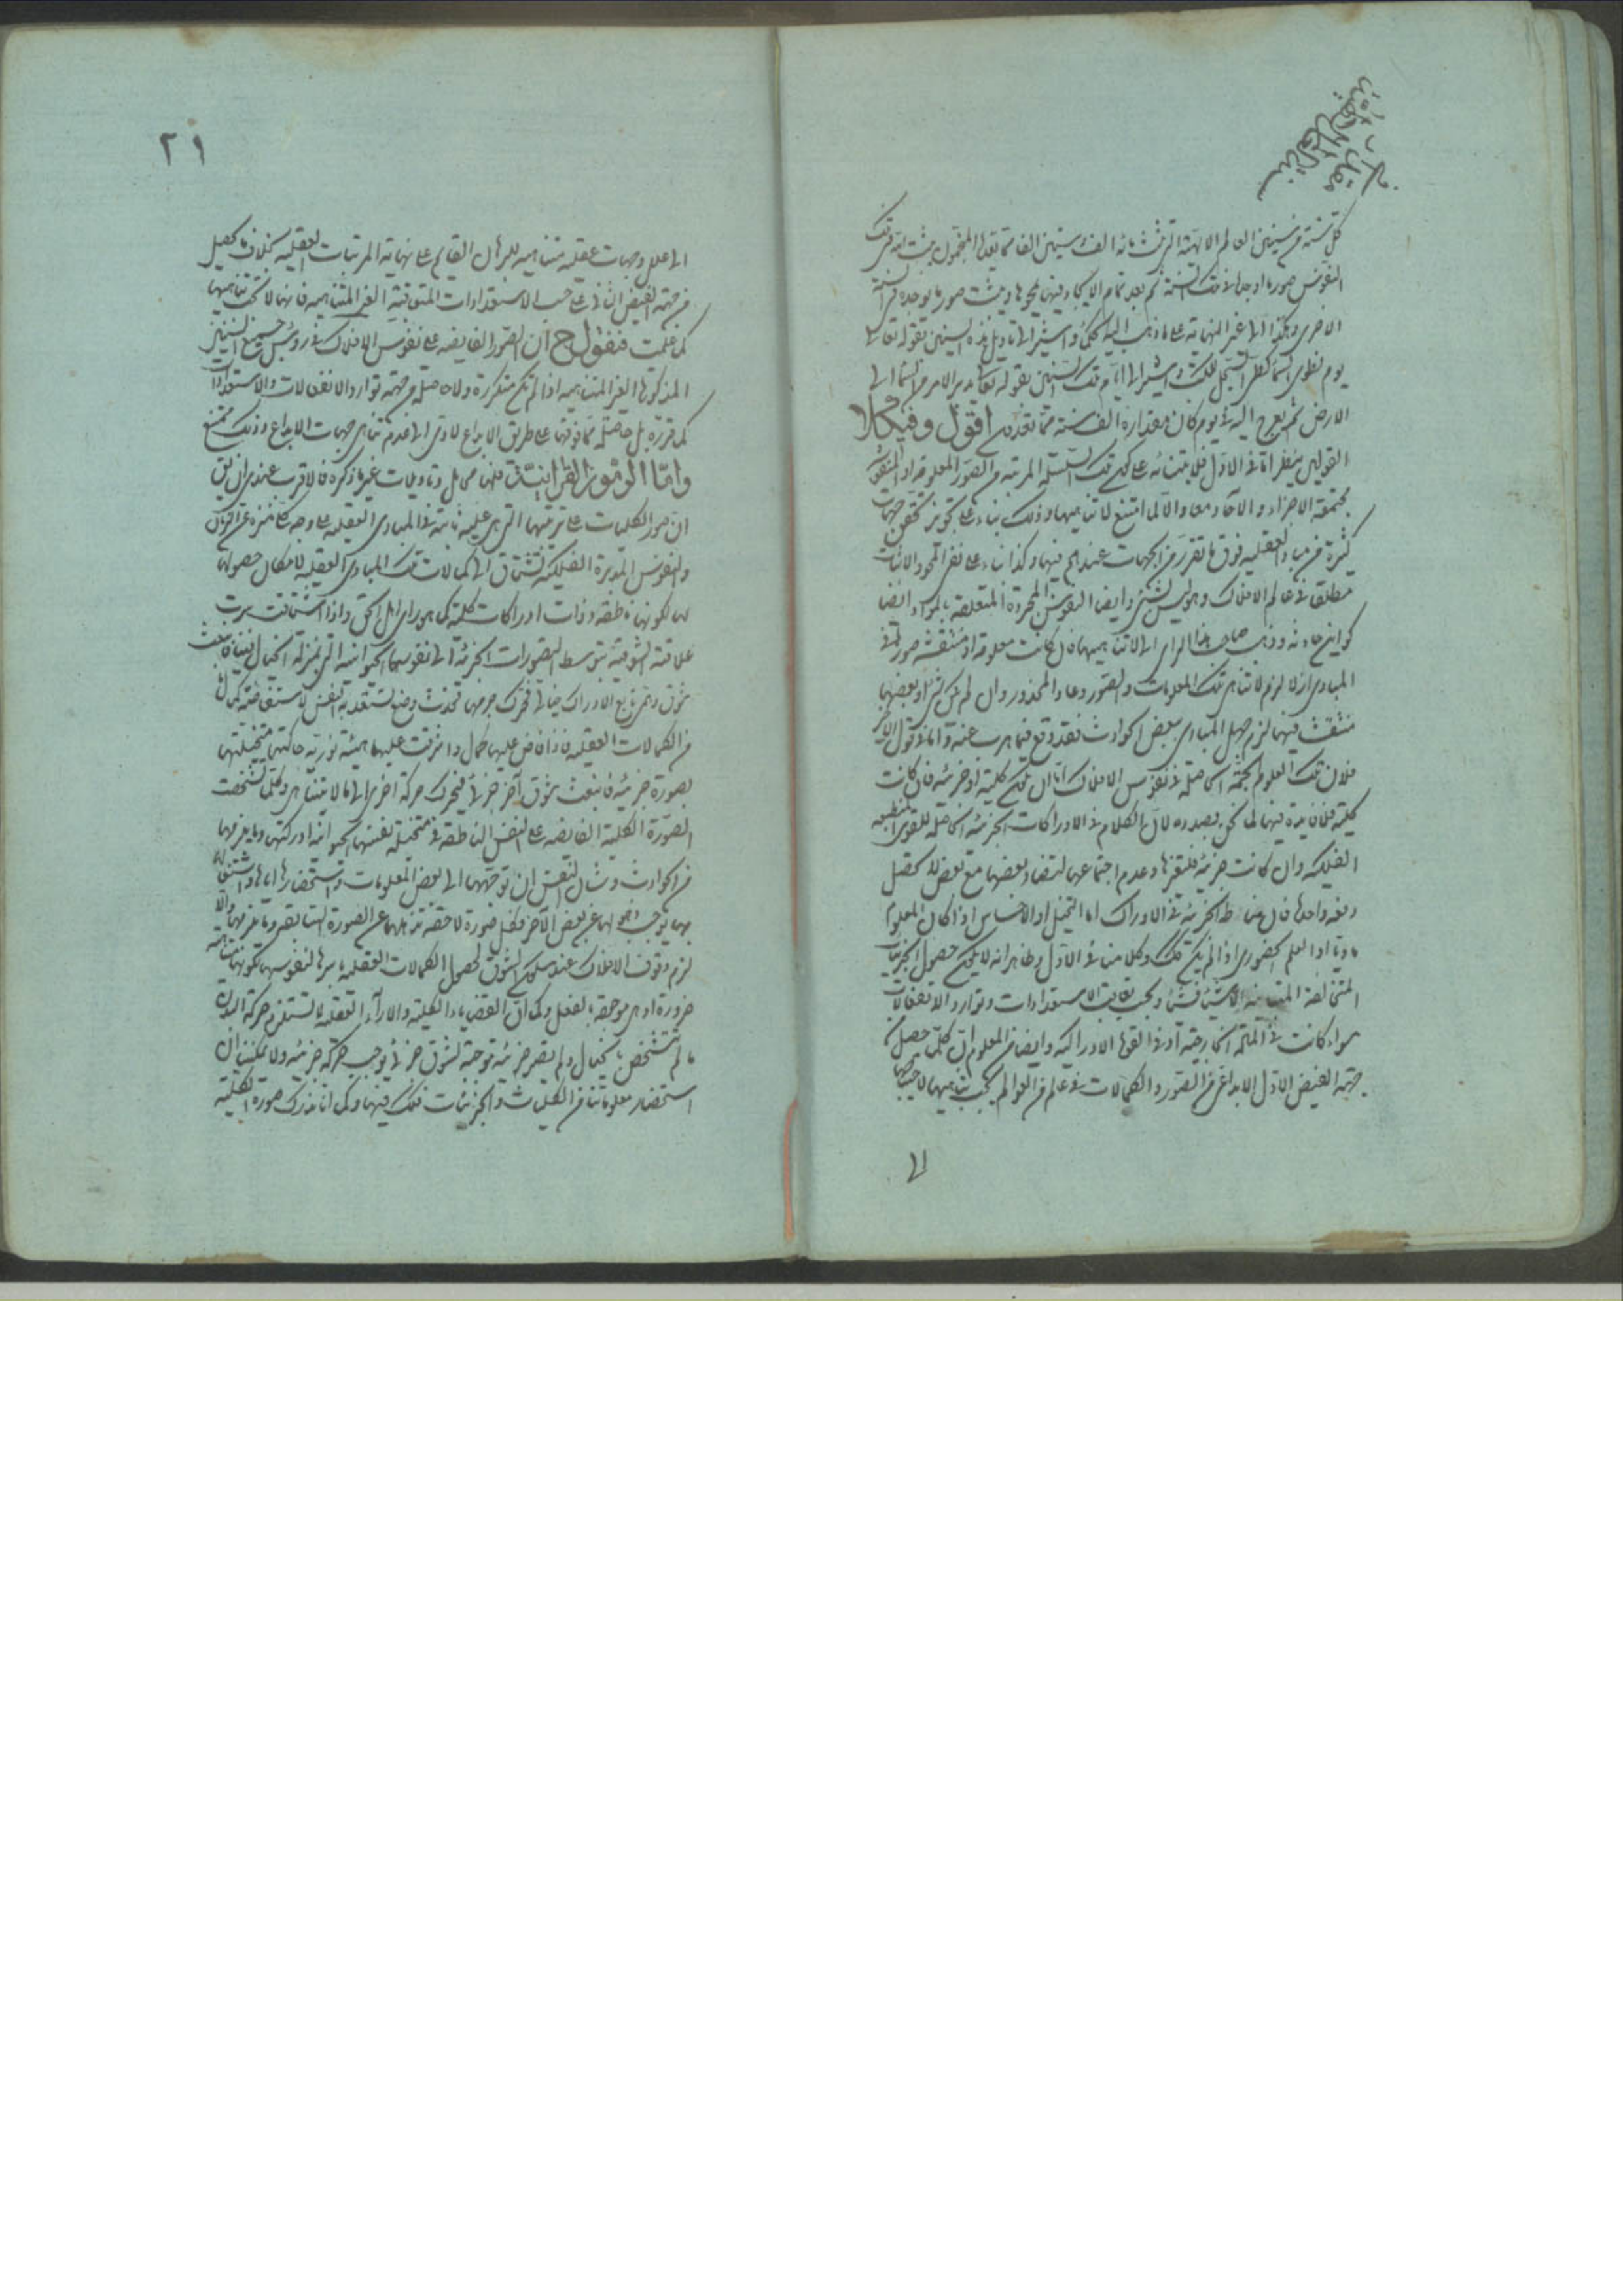 كل سنة من سنين العالم الالهية التي ثلثمائة الف وستين الفا مما يعدها المنجمون ينتقش لتلك
النفوس صور ما يوجد في تلك السنة ثم بعد تمام الايجاد فيها يمحوها ويثبت صور ما يوجد في السنة
الاخرى وهكذا الى غير النهاية على ما ذهب اليه الحكماء واشير الى تاويل هذه السنين بقوله تعالى
يوم نطوى السماء كطى السجل للكتب واشير الى ايام تلك السنين بقوله تعالى يدبر الامر من السماء الى
الارض ثم يعرج اليه في يوم كان مقداره الف سنة مما تعدون اقول وفي كلا
القولين نظر اما في الاول فلابتنائه على كون تلك السلسلة المرتبة من الصور المعلومة او المنقوشة
مجتمعة الاجزاء والآحاد معا والا لما امتنع لا تناهيها وذلك بناء على تجويز تحقق جهات
كثيرة في مباد العقلية فوق ما تقرر من الجهات عندهم فيها وكذا بناء على نفى المحو والاثبات
مطلقا في عالم الافلاك وهو ليس بشيء وايضا النفوس المجردة المتعلقة بالمواد ايضا
كوائن حادثة وذهب صاحب هذا الراى الى لا تناهيها فان كانت معلومة او منتقشة صورتها في
المبادى ازلا لزم لا تناهى تلك المعلومات والصور وعاد المحذور وان لم يكن شيء او بعضها
منتقشة فيها لزم جهل المبادى ببعض الحوادث فقد وقع فيما هرب عنه واما في قول الآخر
فلان تلك العلوم الجمة الحاصلة في نفوس الافلاك اما ان تكون كلية او جزئية فان كانت
كلية فلا فايدة فيها لما نحن بصدده لان الكلام في الادراكات الجزئية الحاصلة للقوى المنطبعة
الفلكية وان كانت جزئية فلتغيرها وعدم اجتماعها لتضاد بعضها مع بعض لا تحصل
دفعة واحدة فان مناط الجزئية في الادراك اما التخيل او الاحساس اذا كان المعلوم
ماديا او العلم الحضورى اذا لم يكن كذلك وكلامنا في الاول وظاهر انه لا يمكن حصول الجزئيات
المتخالفة المتباينة الا شيئا فشيئا وبحسب تعاقب الاستعدادات وتوارد الانفعالات
سواء كانت في المادة الخارجية او في القوة الادراكية وايضا من المعلوم ان كلما حصل من
جهة الفيض الاول الابداعى من الصور والكمالات في عالم من العوالم يجب تناهيها لاحتياجها
الى
٢١
الى علل وجهات عقلية متناهية للبرهان القايم على نهاية المرتبات العقلية بخلاف ما يحصل
من جهة الفيض الثانى على حسب الاستعدادات المتعاقبة الغير المتناهية فانها لا تجب تناهيها
كما علمت فنقول ح ان الصور الفايضة على نفوس الافلاك في رؤس جميع السنين
المذكورة الغير المتناهية اذا لم تكن متكررة ولا حاصلة من جهة توارد الانفعالات والاستعدادات
كما قرره بل حاصلة مما فوقها على طريق الابداع لادى الى عدم تناهى جهات الابداع وذلك ممتنع
واما الرموز القرانية فلها محامل وتاويلات غير ما ذكره فالاقرب عندى ان يق
ان صور الكليات على ترتيبها التى هى عليه ثابتة في المبادى العقلية على وجه كلى منزه عن الزمان
والنفوس المدبرة الفلكية تشتاق الى كمالات تلك المبادى العقلية لامكان حصولها
لها لكونها ناطقة وذات ادراكات كلية كما هو راى اهل الحق واذا اشتاقت سرت
علاقته الشوقية بتوسط التصورات الجزئية الى نفوسها الحيوانية التى بمنزلة الخيال فينا فانبعث
شوق وهمى تابع الادراك خيالى فحرك جرمها فحدث وضع لتستعد به النفس لاستفاضة كمال
من الكمالات العقلية فاذا فاض عليها كمال واشرقت عليها هيئة نورية حاكتها متخيلتها
بصورة جزئية فانبعث شوق آخر جزئى فيحرك حركة اخرى الى ما لا يتناهى وكلما تشخصت
الصورة الكلية الفايضة على النفس الناطقة في متخيلة نفسها الحيوانية ادركتها وما يلزمها
من الحوادث وشان النفس ان توجهها الى بعض المعلومات واستحضارها اياها واشتغالها
بها يوجب ذهولها عن بعض الآخر فكل صورة لاحقة تذهلها عن الصورة السابقة وما يلزمها والا
لزم وقوف الافلاك عند سكون الشوق لحصول الكمالات العقلية باسرها لنفوسها لكونها متناهية
ضرورة اذ هى موجودة بالفعل وكما ان القضايا الكلية والآراء العقلية لا تستلزم حركة البدن
ما لم تتشخص بالخيال ولم يصر جزئية موجبة لشوق جزئى يوجب حركة جزئية ولا يمكننا ان
استحضار معلوماتنا من الكليات والجزئيات فكذلك فيها وكما انا ندرك صورة الكلية